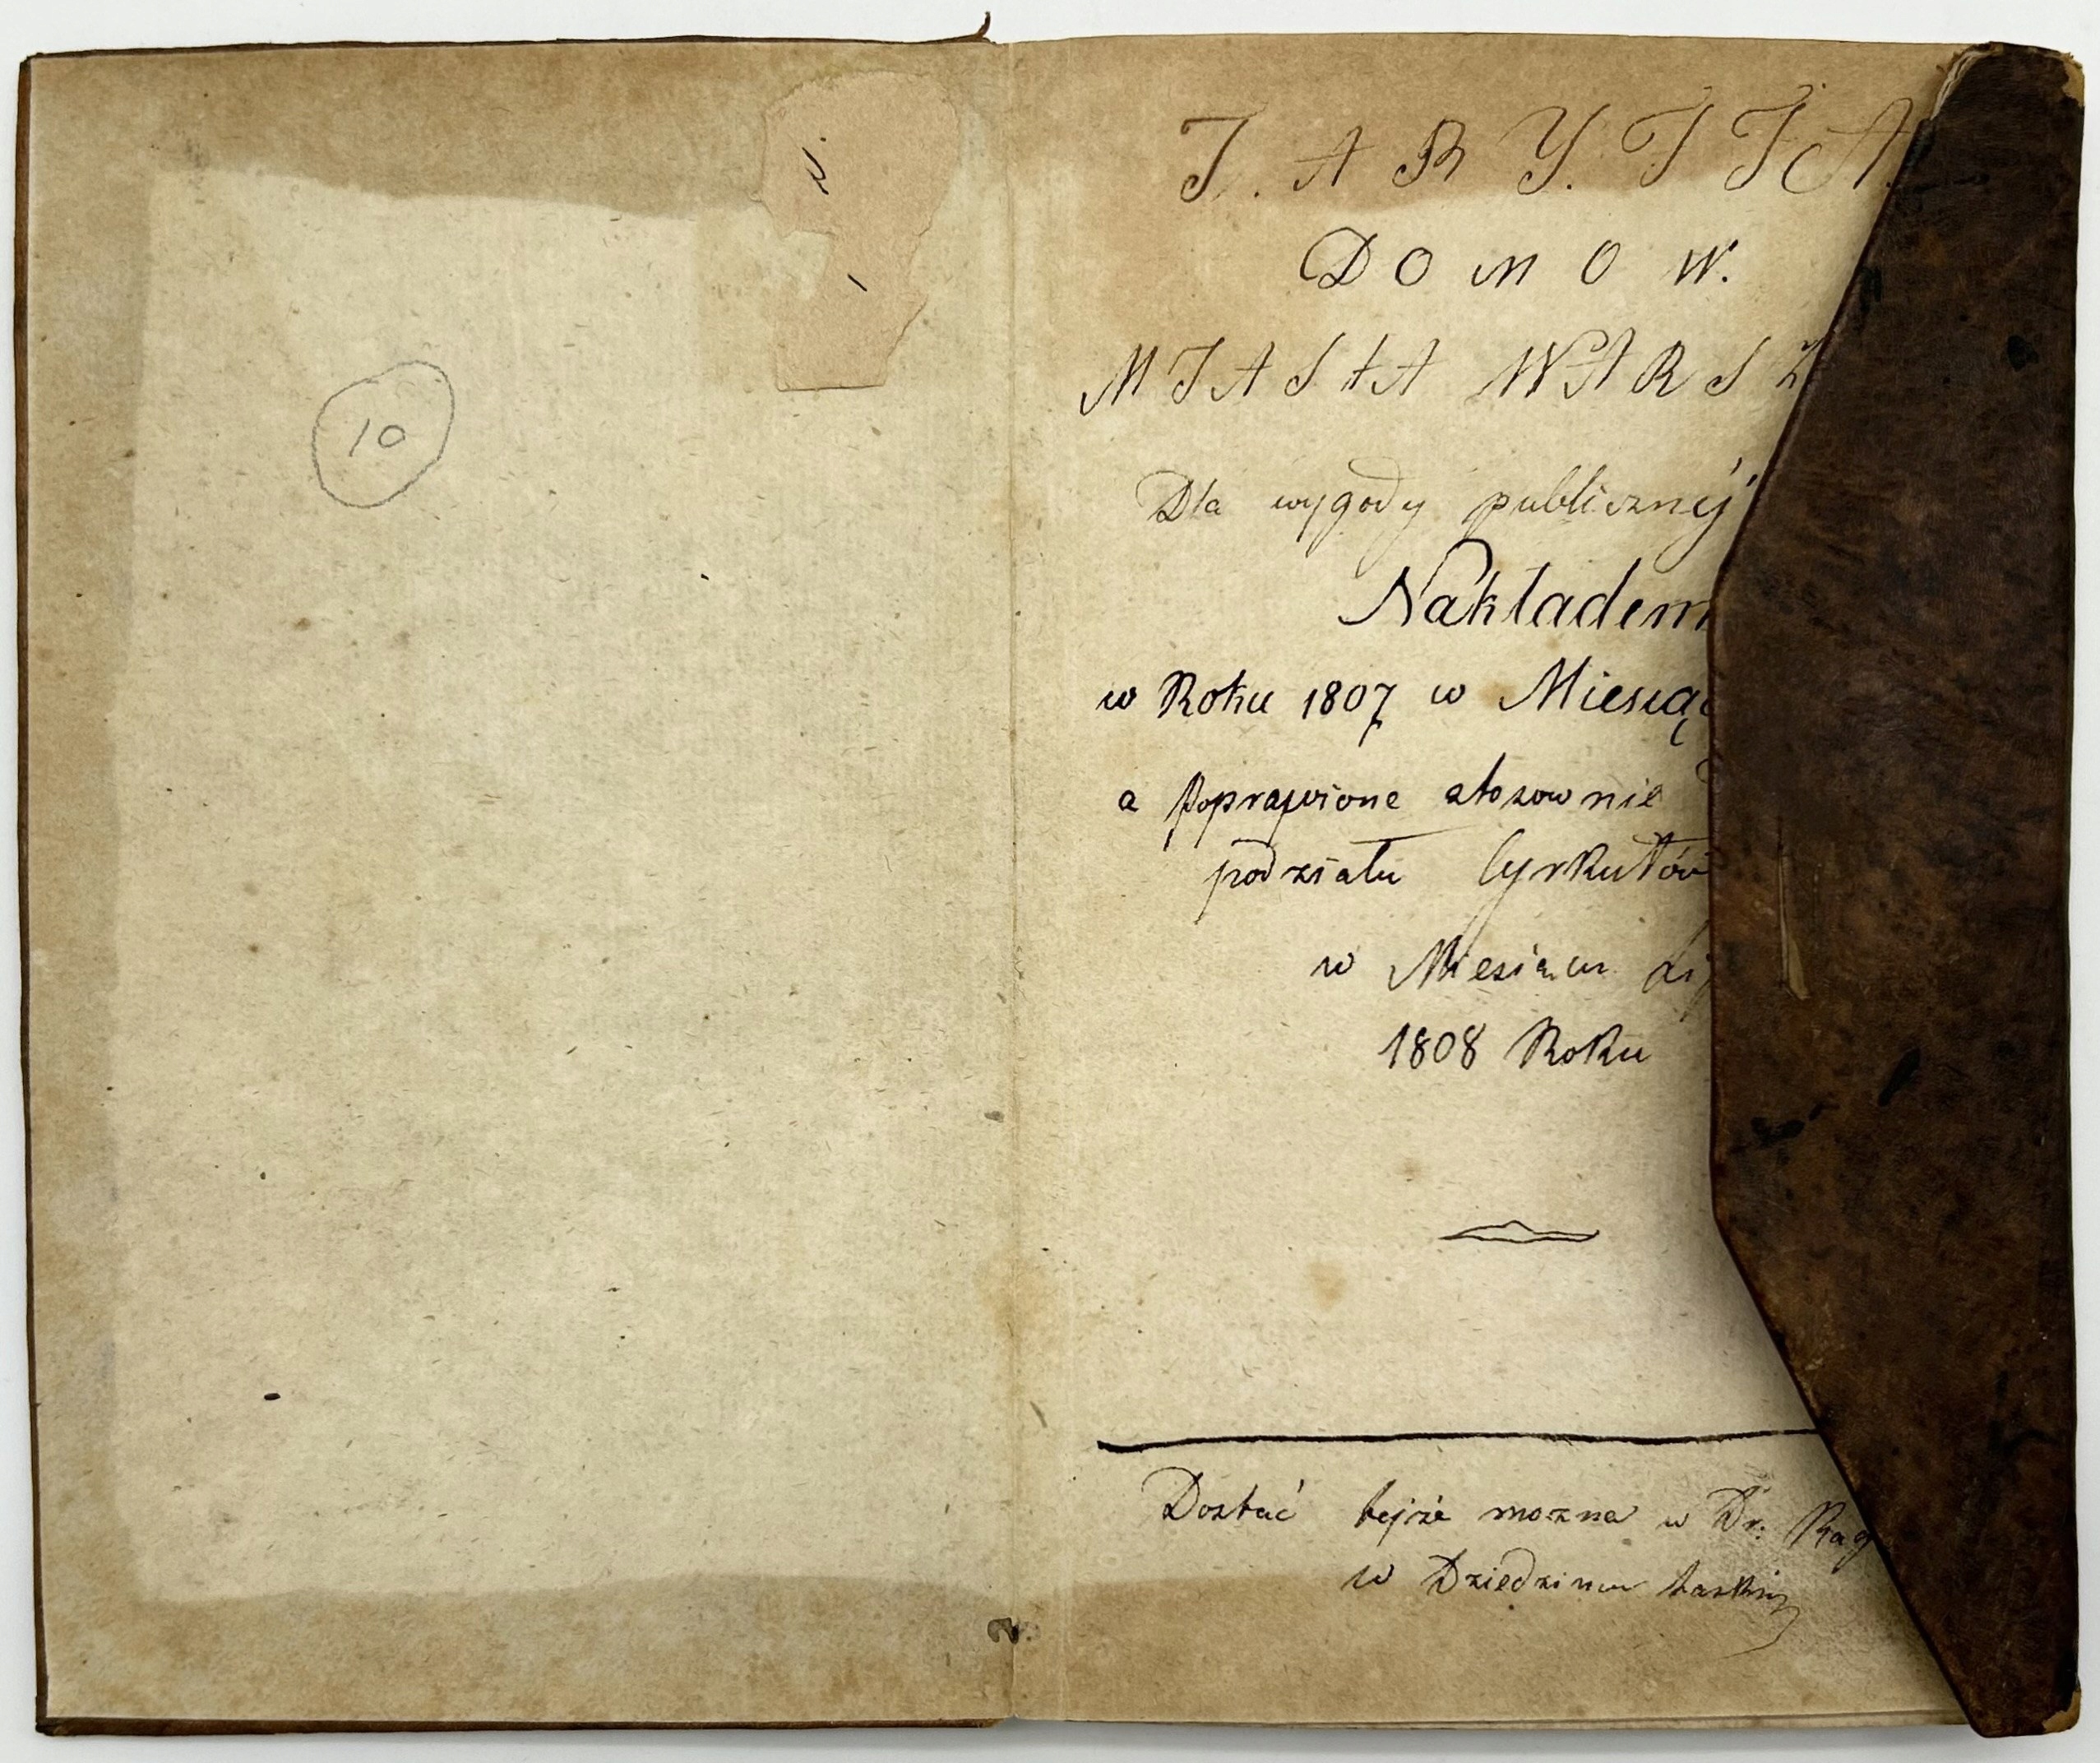 10
T. A R Y. F F A.
D O M O W.
M I A S T A WARSZ
Dla wygody publicznéj
Nakładem
w Roku 1807 w Miesiąc
a poprawione stosownie
podziału Cyrkułów
w Miesiącu Lip
1808 Roku
Dostać tejże można w Dr: Rag
w Dziedzincu
2